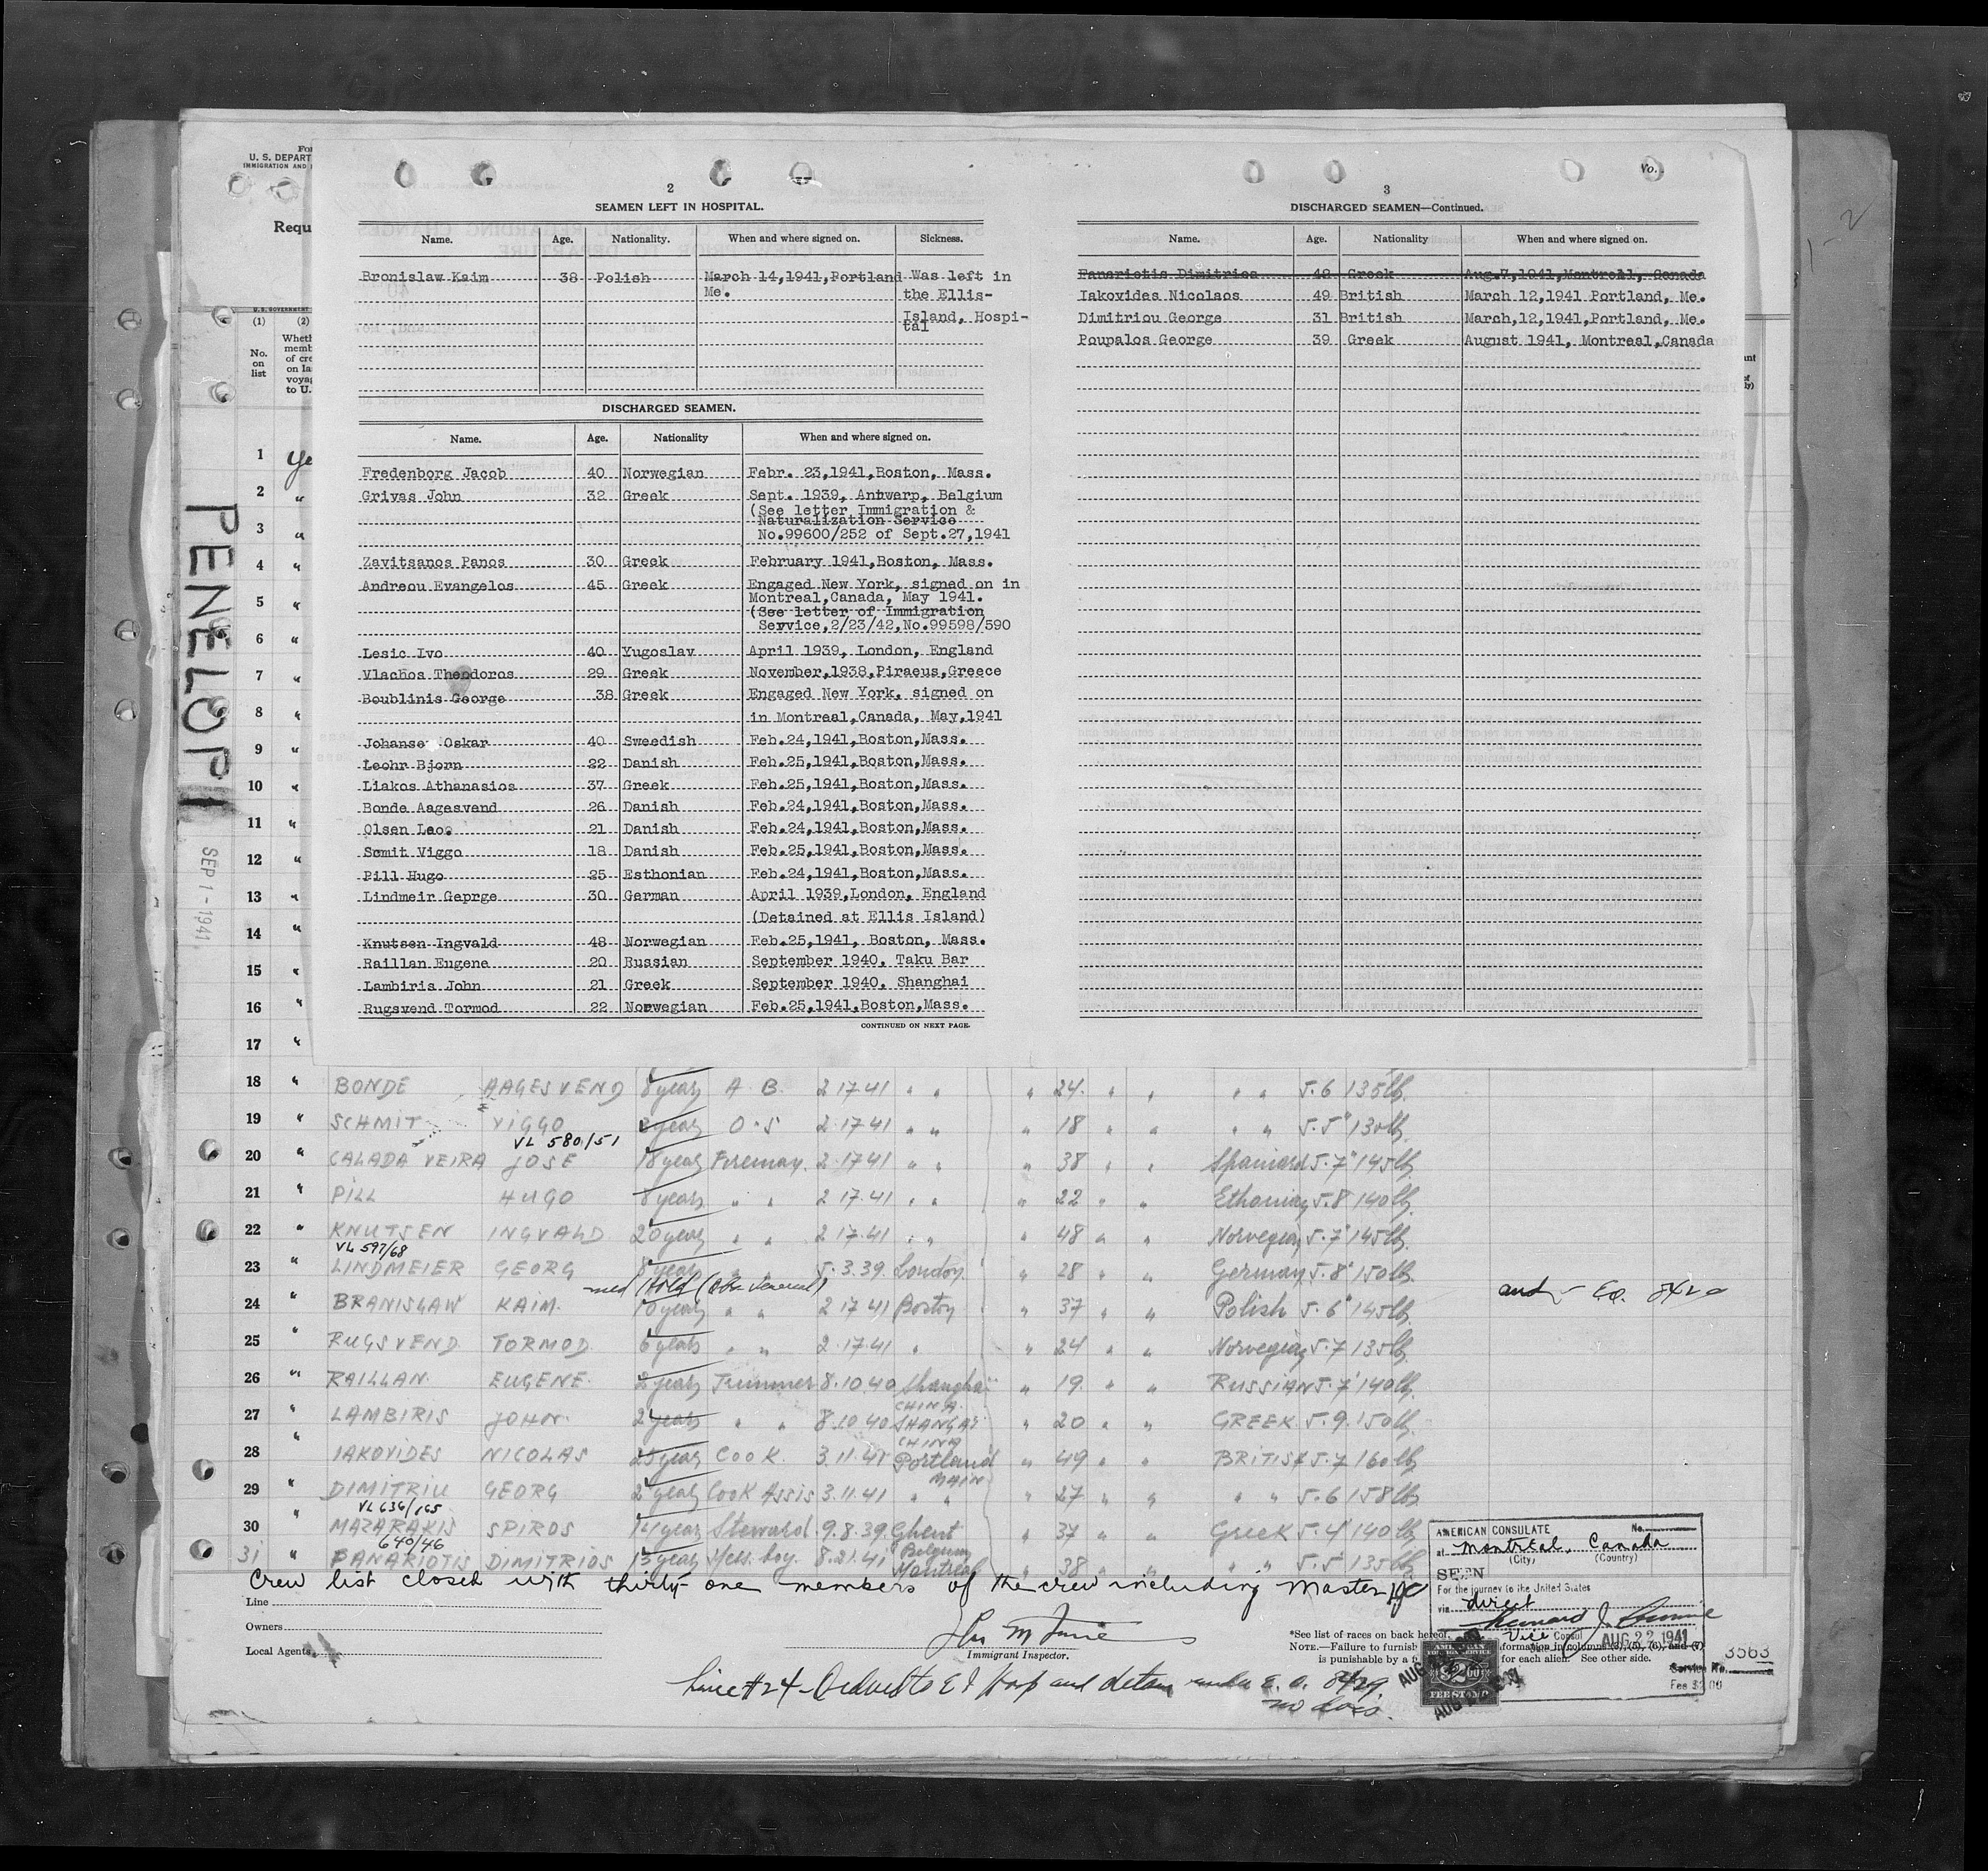 For
U. S. DEPART
IMMIGRATION AND
Requ
No.
1-2
2
SEAMEN LEFT IN HOSPITAL.
Name. Age. Nationality. When and where signed on. Sickness.
Bronislaw Kaim 38 Polish March 14,1941,Portland Was left in
Me. the Ellis-
Island, Hospi-
tal
DISCHARGED SEAMEN.
Name. Age. Nationality When and where signed on.
Fredenborg Jacob 40 Norwegian Febr. 23,1941,Boston, Mass.
Grivas John 32 Greek Sept. 1939, Antwerp, Belgium
(See letter Immigration &
Naturalization Service
No.99600/252 of Sept.27,1941
Zavitsanos Panos 30 Greek February 1941,Boston, Mass.
Andreou Evangelos 45 Greek Engaged New York, signed on in
Montreal,Canada, May 1941.
(See letter of Immigration
Service,2/23/42,No.99598/590
Lesic Ivo 40 Yugoslav April 1939, London, England
Vlachos Theodoros 29 Greek November,1938,Piraeus,Greece
Boublinis George 38 Greek Engaged New York, signed on
in Montreal,Canada, May,1941
Johansen Oskar 40 Sweedish Feb.24,1941,Boston,Mass.
Leohr Bjorn 22 Danish Feb.25,1941,Boston,Mass.
Liakos Athanasios 37 Greek Feb.25,1941,Boston,Mass.
Bonde Aagesvend 26 Danish Feb.24,1941,Boston,Mass.
Olsen Leo. 21 Danish Feb.24,1941,Boston,Mass.
Smit Viggo 18 Danish Feb.25,1941,Boston,Mass.
Pill Hugo 25 Esthonian Feb.24,1941,Boston,Mass.
Lindmeir Geprge 30 German April 1939,London, England
(Detained at Ellis Island)
Knutsen Ingvald 48 Norwegian Feb.25,1941, Boston, Mass.
Raillan Eugene 20 Russian September 1940, Taku Bar
Lambiris John 21 Greek September 1940, Shanghai
Rugsvend Tormod 22 Norwegian Feb.25,1941,Boston,Mass.
CONTINUED ON NEXT PAGE.
3
DISCHARGED SEAMEN—Continued.
Name. Age. Nationality When and where signed on.
Panariotis Dimitrios 48 Greek Aug.7,1941,Montreal, Canada
Iakovides Nicolaos 49 British March 12,1941 Portland, Me.
Dimitriou George 31 British March,12,1941,Portland, Me.
Poupalos George 39 Greek August 1941, Montreal,Canada
(1) (2)
No. on list
Wheth
memb
of cre
on la
voyag
to U.
PENELOPI
SEP 1 - 1941
1 Ye
2 "
3 "
4 "
5 "
6 "
7 "
8 "
9 "
10 "
11 "
12 "
13 "
14 "
15 "
16 "
17 "
18 " BONDE AAGESVEND 8 years A. B. 2 17.41 " " " 24. " " " " 5.6 135lb.
19 " SCHMIT VIGGO 2 years O.S 2.17.41 " " " 18 " " " " 5.5" 130lb.
VL 580/51
20 " CALADA VEIRA JOSE 18 years Fireman. 2.17 41 " " " 38 " " Spaniard 5.7" 145lb.
21 " PILL HUGO 8 years " " 2 17.41 " " " 22 " " Ethonian 5.8 140lb.
22 " KNUTSEN INGVALD 20 years " " 2 17.41 " " " 48 " " Norvegian 5.7" 145lb.
VL 597/68
23 " LINDMEIER GEORG 8 years " " 5.3.39. London " 28 " " German 5.8" 150lb.
med Hold
24 " BRANISLAW KAIM. 10 years " " 2 17 41 Boston " 37 " " Polish 5.6" 145lb.
25 " RUGSVEND. TORMOD. 6 years " " 2.17.41 " " 24 " " Norvegian 5.7 135lb.
26 " RAILLAN. EUGENE. 2 years Trimmer 8.10.40 Shanghai " 19. " " RUSSIAN 5.7" 140lb.
CHINA.
27 " LAMBIRIS JOHN. 2 years " " 8.10 40 SHANGAI " 20 " " GREEK 5.9. 150lb.
CHINA
28 " IAKOVIDES NICOLAS 25 years COOK. 3.11.41 Portland " 49 " " BRITISH 5.7 160lb
MAIN
29 " DIMITRIU GEORG 2 years Cook Assis 3.11.41 " " " 27 " " " " 5.6 158lb
VL 636/165
30 " MAZARAKIS SPIROS 14 years Steward. 9.8.39. Ghent " 37 " " Greek 5.4" 140 lb
640/46 Belgium
31 " PANARIOTIS DIMITRIOS 15 years Mess. boy. 8.21.41 Montreal " 38 " " " " 5.5" 135lb
Crew list closed with thirty-one members of the crew including Master
Line
Owners
Local Agents
Immigrant Inspector.
*See list of races on back hereof.
NOTE.—Failure to furnish
formation in columns (3), (5), (6), and (7)
is punishable by a f
for each alien. See other side.
AMERICAN CONSULATE No.
at Montreal, Canada
(City) (Country)
SEEN
For the journey to the United States
via direct
Vice Consul AUG 22 1941
Service No. 3563
Fee $2.00
AMERICAN
FOREIGN SERVICE
$2.00
FEE STAMP
Line #24 - Ordered to E I Hosp and detain under E. O. 8429
no docs.